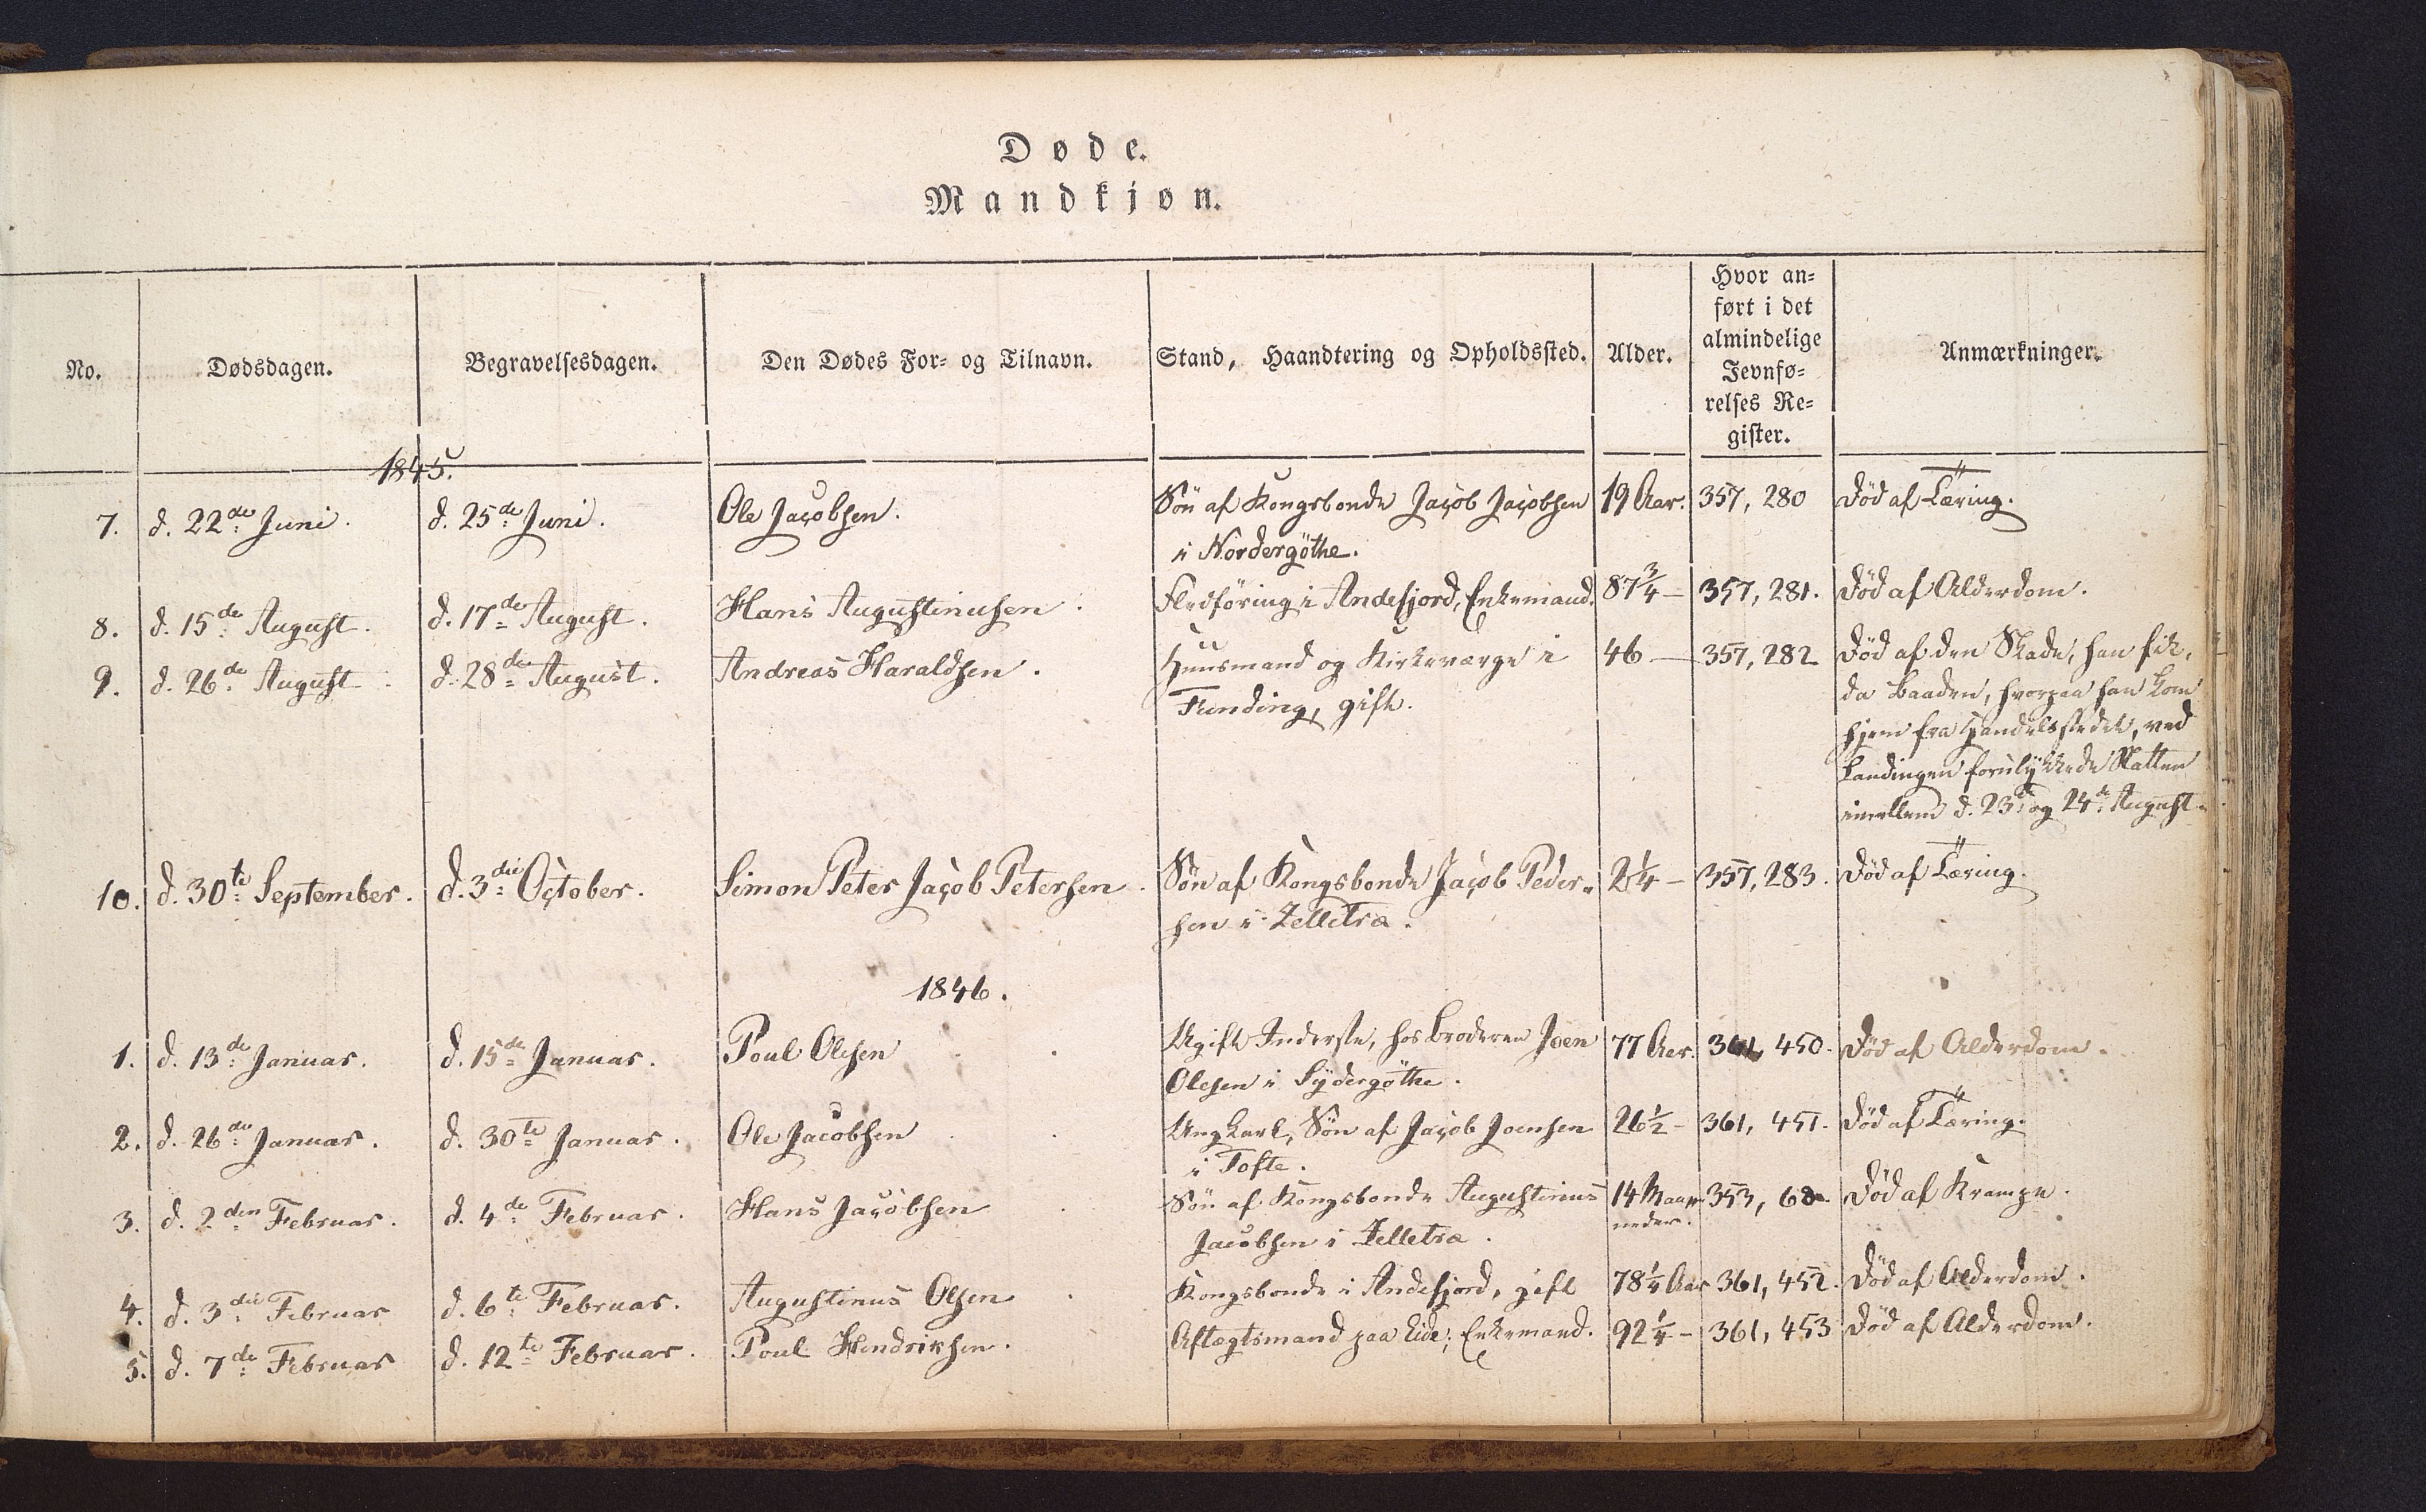 Døde.
Mandkjøn.
No.
Dødsdagen.
Begravelsesdagen.
Den Dødes For- og Tilnavn.
Stand, Haandtering og Opholdssted.
Alder.
Hvor an-
ført i det
almindelige
Jevnfø-
relses Re-
gister.
Anmærkninger.
1845.
7. d. 22de Juni. d. 25de Juni. Ole Jacobsen. Søn af Kongsbonde Jacob Jacobsen 19 Aar. 357, 280 Død af Tæring.
i Nordergöthe.
8. d. 15de August. d. 17de August. Hans Augustinusen. Fledføring i Andefjord, Enkemand. 87 3/4 — 357, 281. Død af Alderdom.
9. d. 26de August. d. 28de August. Andreas Haraldsen. Huusmand og Kirkeværge i 46 — 357, 282 Død af den Skade, han fik,
Funding, gift. da Baaden, hvorpaa han kom
hjem fra Handelsstedet, ved
Landingen forulykkede Natten
imellem d. 23de og 24de August.
10. d. 30te September. d. 3die October. Simon Peter Jacob Petersen. Søn af Kongsbonde Jacob Peder- 2 1/4 — 357, 283. Død af Tæring.
sen i Zelletræ.
1846.
1. d. 13de Januar. d. 15de Januar. Poul Olesen Ugift Inderste, hos Broderen Joen 77 Aar. 361, 450. Død af Alderdom.
Olesen i Sydergöthe.
2. d. 26de Januar. d. 30te Januar. Ole Jacobsen Ungkarl, Søn af Jacob Joensen 26 1/2 — 361, 451. Død af Tæring.
i Tofte.
3. d. 2den Februar. d. 4de Februar. Hans Jacobsen Søn af Kongsbonde Augustinus 14 Maa- 353, 68. Død af Krampe.
Jacobsen i Zelletræ. neder.
4. d. 3die Februar d. 6te Februar. Augustinus Olsen Kongsbonde i Andefjord, gift 78 1/4 Aar 361, 452. Død af Alderdom.
5. d. 7de Februar d. 12te Februar. Poul Hendriksen. Aftægtsmand paa Eide; Enkemand. 92 1/4 — 361, 453 Død af Alderdom.